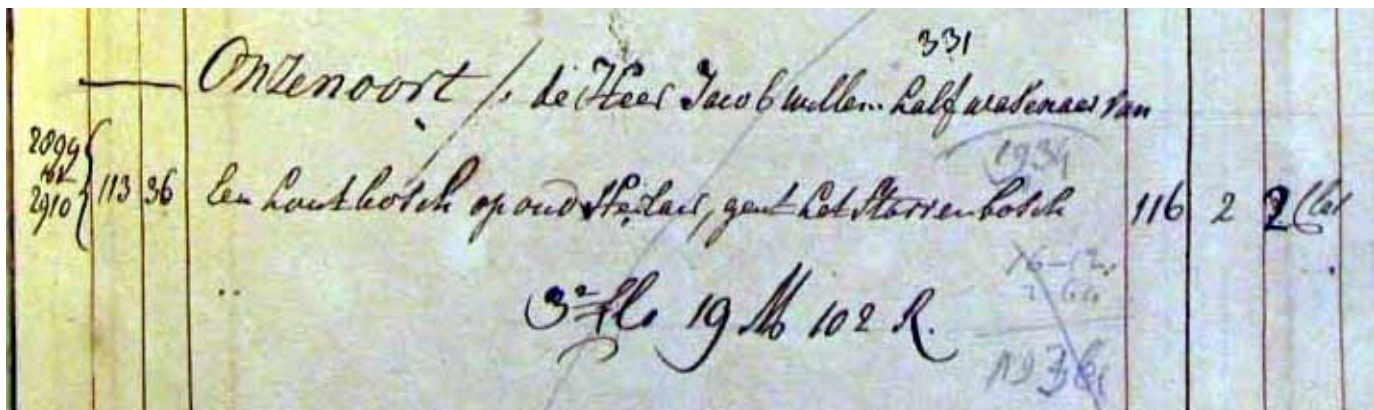 331
Onzenoort /: de Heer Jacob willem half wasenaer van
1934
2899
tot
2910
113 36 Een houtbosch op oud Heilaer, gent het Starrenbosch 116 2 2
3e Clo 19 M 102 R.